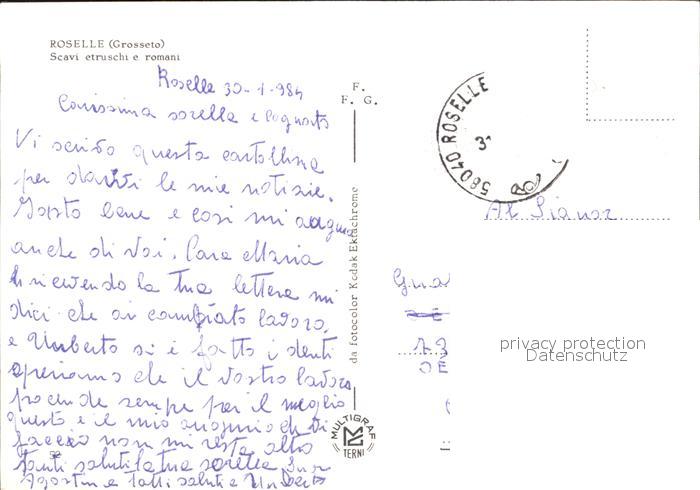 ROSELLE (Grosseto)
Scavi etruschi e romani
Roselle 30-1-984
Carissima sorella e cognato
Vi scrivo questa cartolina
per darvi le mie notizie.
Io sto bene e così mi auguro
anche di voi. Cara Maria
ricevendo la tua lettera mi
dici che ai cambiato lavoro.
e Umberto si è fatto i denti
speriamo che il vostro lavoro
procende sempre per il meglio
questo è il mio augurio che vi
faccio non mi resta altro
tanti saluti la tua sorella
Agostin e tatti saluti e Umberto
F.
F. G.
da fotocolor Kodak Ektachrome
MULTIGRAF
TERNI
58040 ROSELLE
Al Signor
privacy protection
Datenschutz